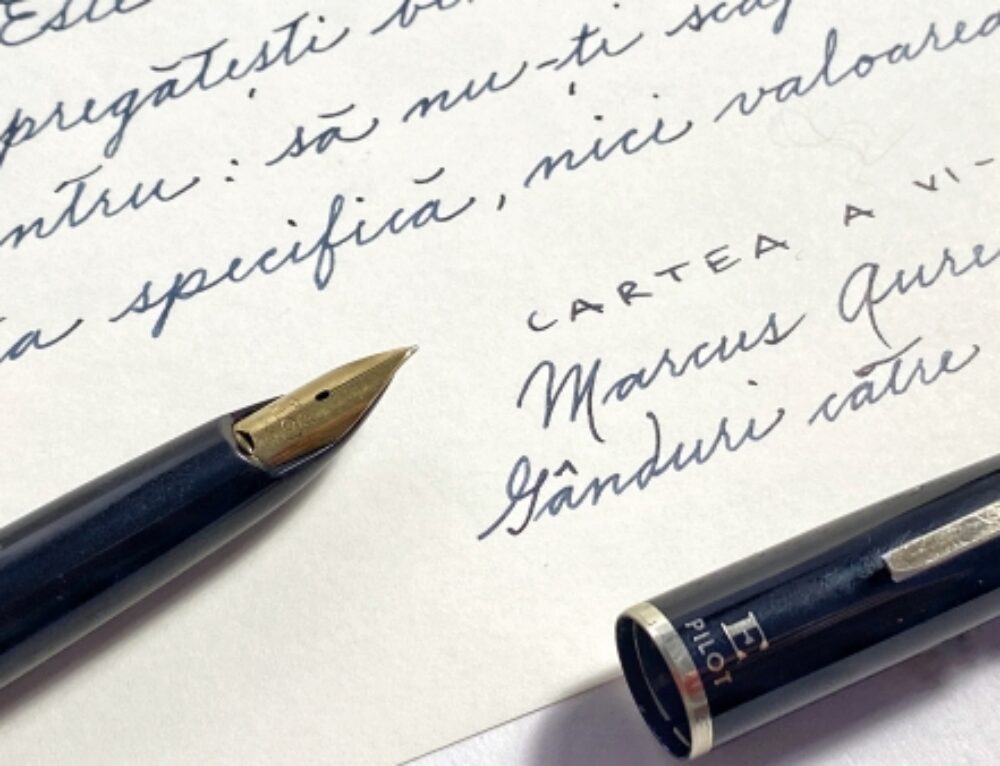 Este
pregătești
să nu-ți
specifică, nici valoarea
CARTEA A VI-
Marcus
Gânduri către
E
PILOT